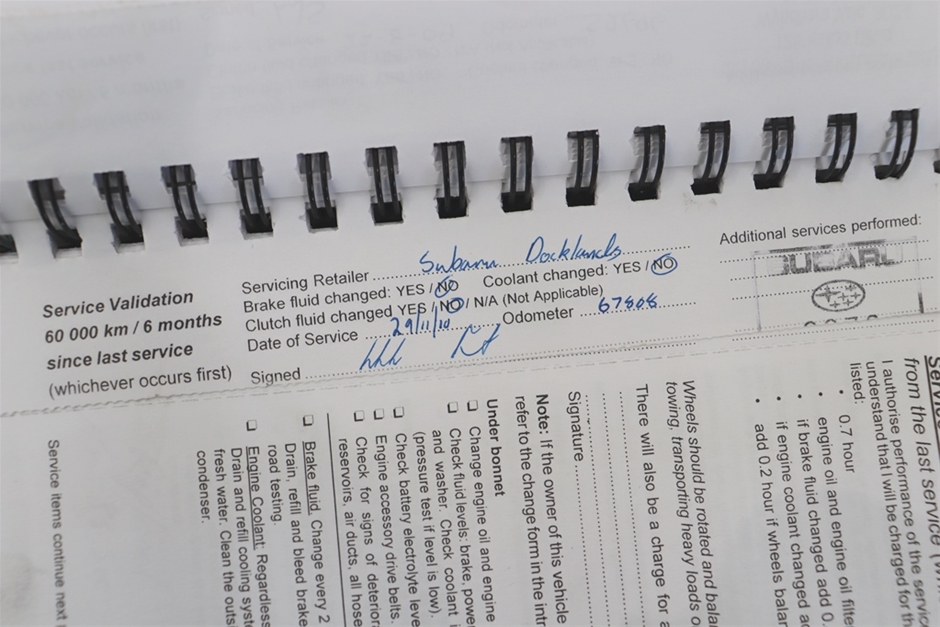 Service Validation
60 000 km / 6 months
since last service
(whichever occurs first)
Servicing Retailer Subaru Docklands
Brake fluid changed: YES / NO Coolant changed: YES / NO
Clutch fluid changed YES / NO / N/A (Not Applicable)
Date of Service 29/11/10 Odometer 67808
Signed
Additional services performed:
Service
from the last service
I authorise performance of the
understand that I will be charged for
listed:
• 0.7 hour
• engine oil and engine oil
• if brake fluid changed add 0.
• if engine coolant changed
• add 0.2 hour if wheels
Wheels should be rotated and
towing, transporting heavy loads
There will also be a charge for
Signature
Note: If the owner of this vehicle
refer to the change form in the
Under bonnet
❑ Change engine oil and engine
❑ Check fluid levels: brake,
and washer. Check coolant
(pressure test if level is low).
❑ Check battery electrolyte
❑ Engine accessory drive belts.
❑ Check for signs of
reservoirs, air ducts, all
❑ Brake fluid. Change every 2
Drain, refill and bleed brake
road testing.
❑ Engine Coolant: Regardless
Drain and refill cooling
fresh water. Clean the
condenser.
Service items continue next